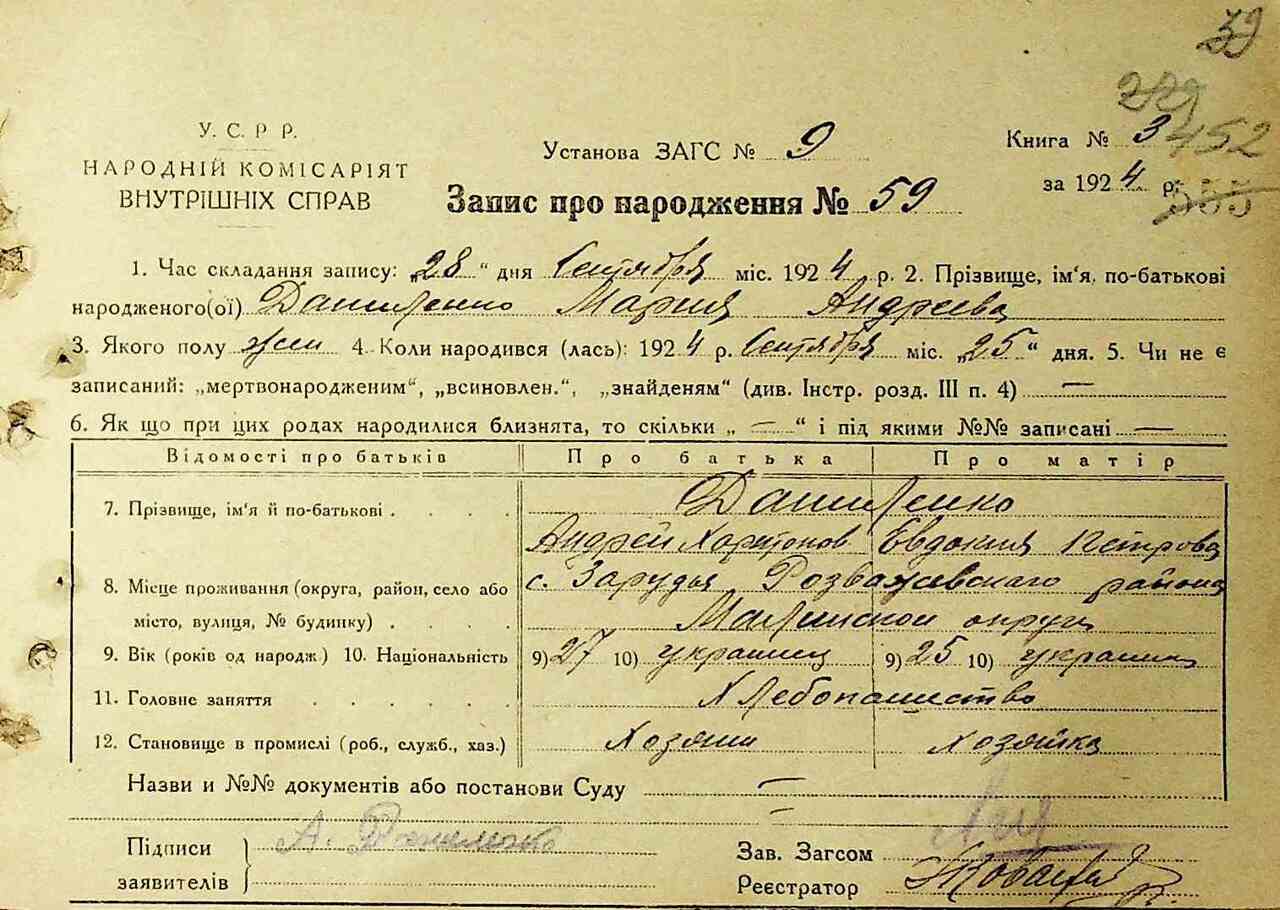 39
229
У. С. Р Р.
НАРОДНІЙ КОМІСАРІЯТ
ВНУТРІШНІХ СПРАВ
Установа ЗАГС № 9
Книга № 3
452
за 1924 р.
555
Запис про народження № 59
1. Час складання запису: „28“ дня Сентября міс. 1924 р. 2. Прізвище, ім'я, по-батькові
народженого(ої) Даниленко Мария Андреева
3. Якого полу жен 4. Коли народився (лась): 1924 р. Сентября міс. „25“ дня. 5. Чи не є
записаний: „мертвонародженим“, „всиновлен.“, „знайденям“ (див. Інстр. розд. III п. 4) —
6. Як що при цих родах народилися близнята, то скільки „ — “ і під якими №№ записані —
Відомості про батьків Про батька Про матір
7. Прізвище, ім'я й по-батькові . . . . Даниленко
Андрей Харитонов Евдокия Петрова
8. Місце проживання (округа, район, село або с. Зарудья Розважевскаго района
місто, вулиця, № будинку) . . . . Малинской округи
9. Вік (років од народж) 10. Національність 9) 27 10) украинец 9) 25 10) украин
11. Головне заняття . . . . . . Хлебопашество
12. Становище в промислі (роб., служб., хаз.) Хозяин Хозяйка
Назви и №№ документів або постанови Суду —
Підписи
заявителів
А. Даниленко
Зав. Загсом
Реєстратор